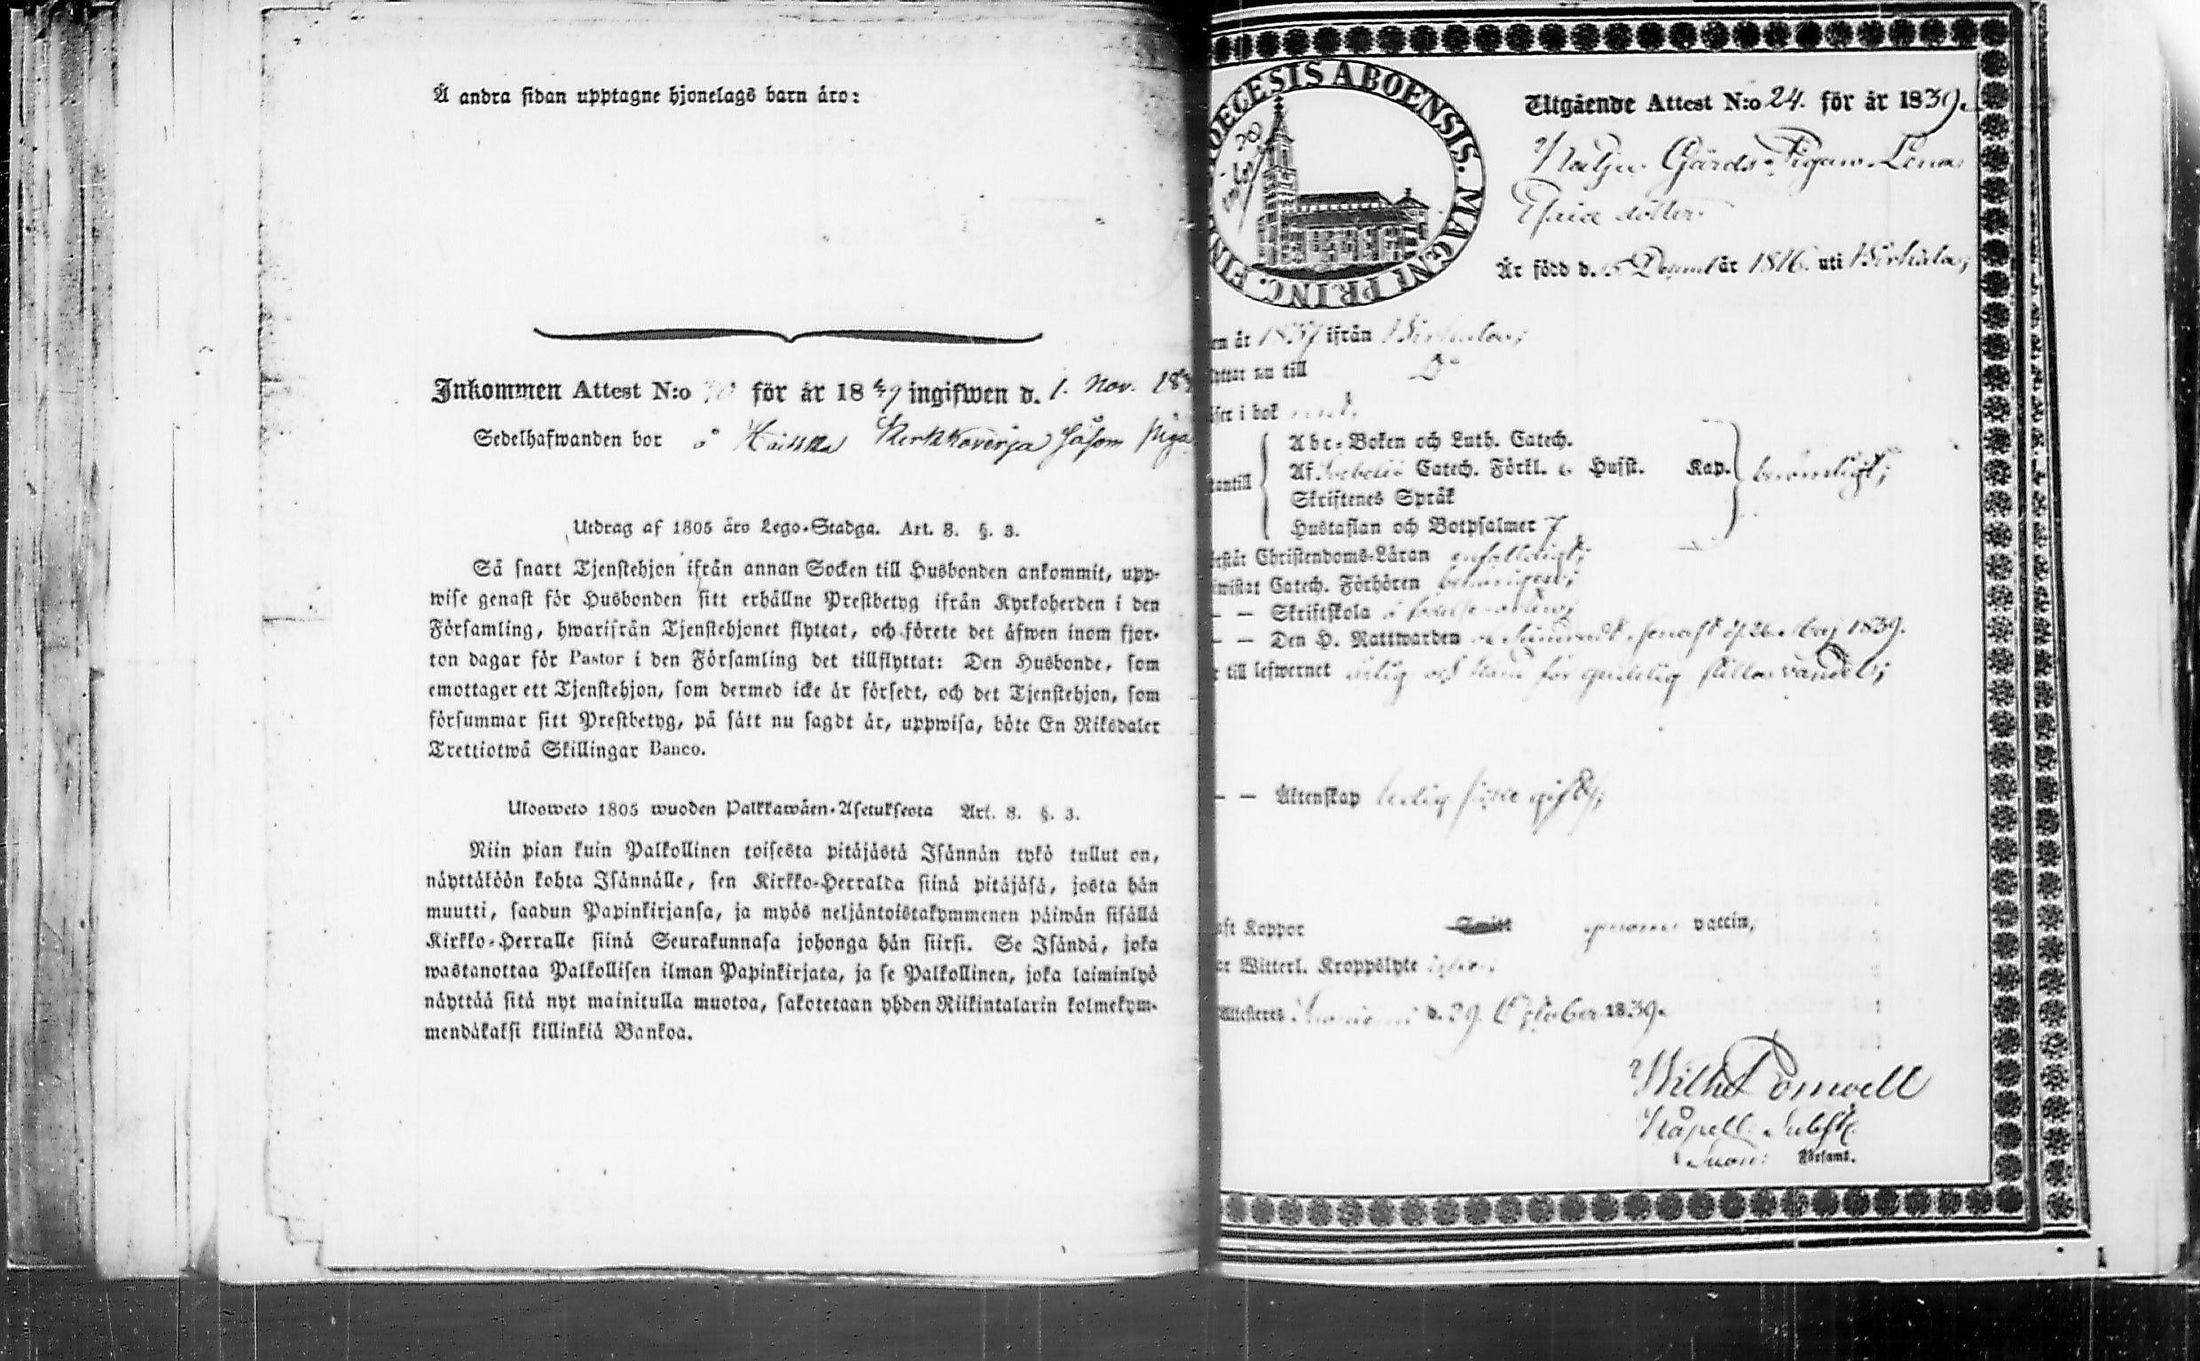 Å andra sidan upptagne hjonelags barn äro:
Inkommen Attest N:o för år 18 ingifwen d. 1. Nov.
Sedelhafwanden bor å Kerkkoverja såsom piga
Utdrag af 1805 års Lego-Stadga. Art. 8. §. 3.
Så snart Tjenstehjon ifrån annan Socken till Husbonden ankommit, upp-
wise genast för Husbonden sitt erhållne Prestbetyg ifrån Kyrkoherden i den
Församling, hwarifrån Tjenstehjonet flyttat, och förete det äfwen inom fjor-
ton dagar för Pastor i den Församling det tillflyttat: Den Husbonde, som
emottager ett Tjenstehjon, som dermed icke är försedt, och det Tjenstehjon, som
försummar sitt Prestbetyg, på sätt nu sagdt är, uppwisa, böte En Riksdaler
Trettiotwå Skillingar Banco.
Ulosweto 1805 wuoden Palkkawäen-Asetuksesta Art. 8. §. 3.
Niin pian kuin Palkollinen toisesta pitäjästä Isännän tykö tullut on,
näyttäköön kohta Isännälle, sen Kirkko-Herralda siinä pitäjäsä, josta hän
muutti, saadun Papinkirjansa, ja myös neljäntoistakymmenen päiwän sisällä
Kirkko-Herralle siinä Seurakunnasa johonga hän siirsi. Se Isändä, joka
wastanottaa Palkollisen ilman Papinkirjata, ja se Palkollinen, joka laiminlyö
näyttää sitä nyt mainitulla muotoa, sakotetaan yhden Riikintalarin kolmekym-
mendäkaksi killinkiä Bankoa.
DIOECESIS ABOENSIS. MAGNI PRINC. FINL
Utgående Attest N:o 24. för år 1839.
Gårds Pigan Lena
Erics dotter
Är född d. Decemb år 1816. uti Birkala;
en år 1837 ifrån Birkala;
lyttar nu till D:o
äser i bok
tantill
Abc-Boken och Luth. Catech.
Af Catech. Förkl. Hufst. Kap.
Skriftenes Språk
Hustaflan och Botpsalmer 7
berömligt;
erstår Christendoms-Läran enfaldigt;
iwistat Catech. Förhören behörigen;
— — Skriftskola
— — Den H. Nattwarden senast d. 26 Maj 1839.
r till lefwernet ärlig och känd för gudelig stilla vandel;
— — Äktenskap ledig
aft Koppor genom vaccin;
ar Witterl. Kroppslyte
Attesteres d. 29. October 1839.
Wilh Pomoell
Kapell. Subst.
Suon: Församl.